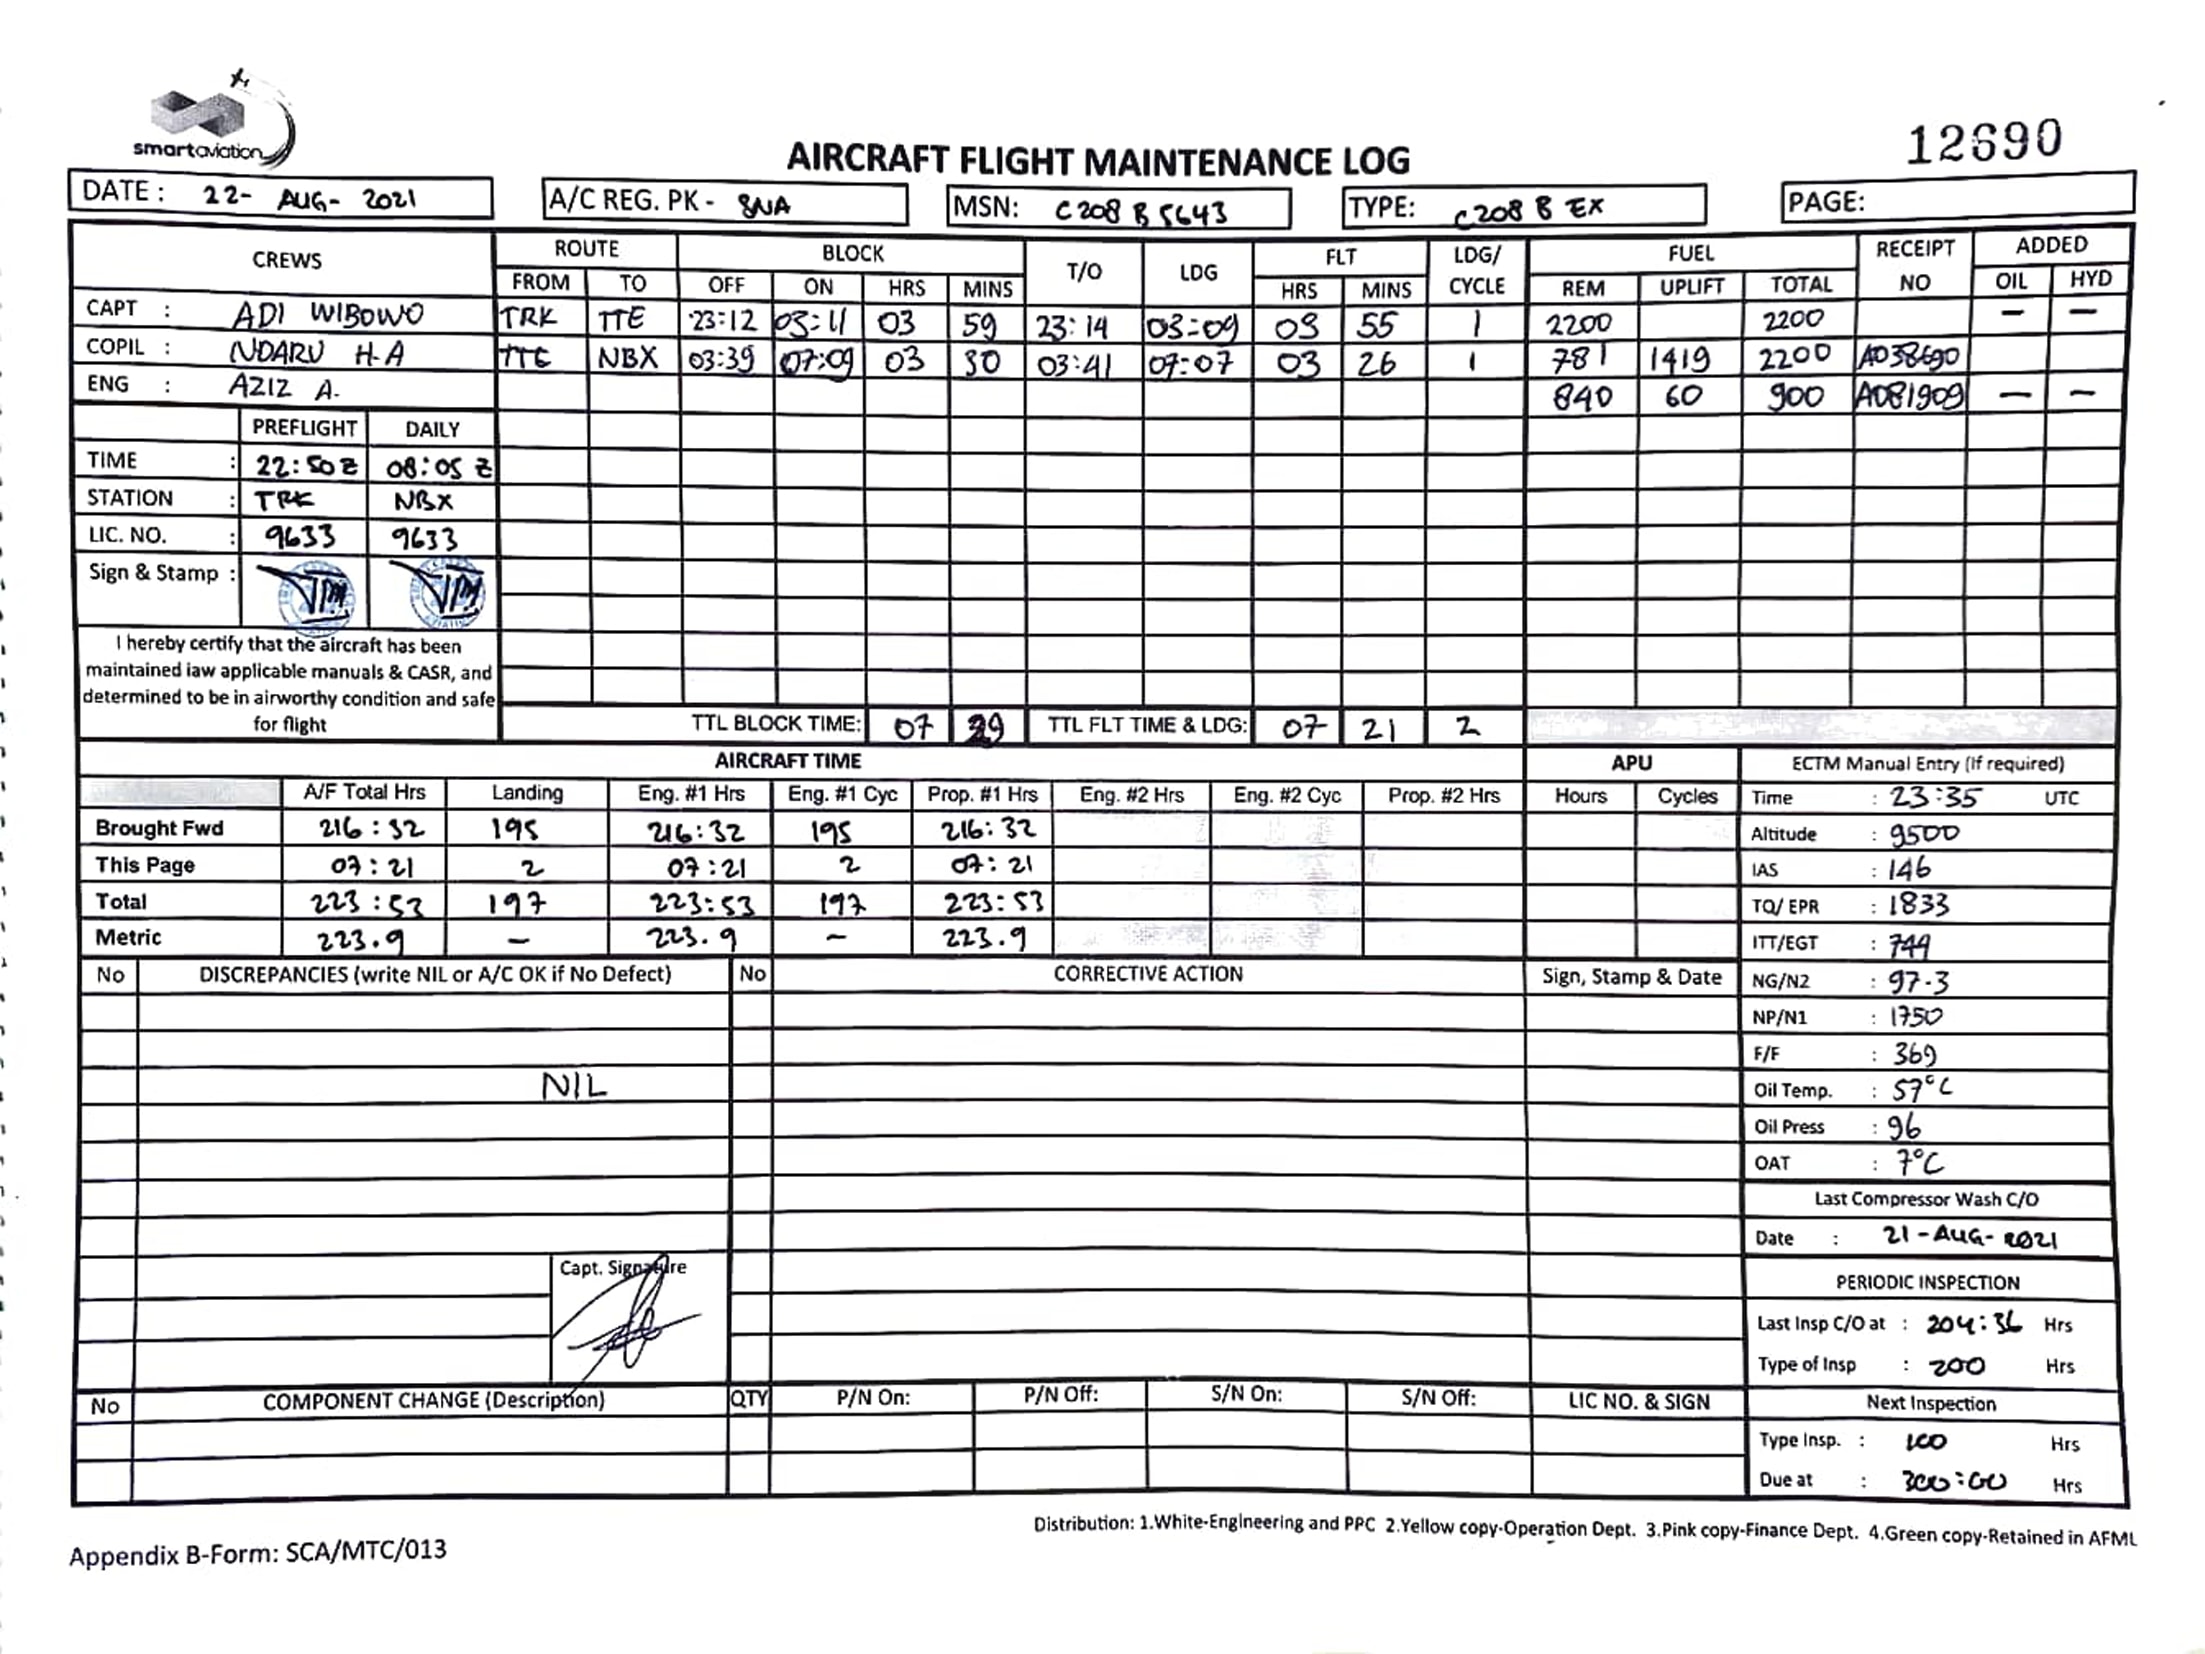 smartaviation
12690
AIRCRAFT FLIGHT MAINTENANCE LOG
DATE : 22- AUG- 2021 A/C REG. PK - SNA MSN: C208 B 5643 TYPE: C208 B EX PAGE:
CREWS ROUTE BLOCK T/O LDG FLT LDG/ CYCLE FUEL RECEIPT NO ADDED
FROM TO OFF ON HRS MINS HRS MINS REM UPLIFT TOTAL OIL HYD
CAPT : ADI WIBOWO TRK TTE 23:12 03:11 03 59 23:14 03:09 03 55 1 2200 2200 — —
COPIL : NDARU H.A TTE NBX 03:39 07:09 03 30 03:41 07:07 03 26 1 781 1419 2200 A038690
ENG : AZIZ A. 840 60 900 A081909 — —
PREFLIGHT DAILY
TIME : 22:50 Z 08:05 Z
STATION : TRK NBX
LIC. NO. : 9633 9633
Sign & Stamp :
I hereby certify that the aircraft has been
maintained iaw applicable manuals & CASR, and
determined to be in airworthy condition and safe
for flight
TTL BLOCK TIME: 07 29 TTL FLT TIME & LDG: 07 21 2
AIRCRAFT TIME APU ECTM Manual Entry (If required)
A/F Total Hrs Landing Eng. #1 Hrs Eng. #1 Cyc Prop. #1 Hrs Eng. #2 Hrs Eng. #2 Cyc Prop. #2 Hrs Hours Cycles Time : 23:35 UTC
Brought Fwd 216:32 195 216:32 195 216:32 Altitude : 9500
This Page 07:21 2 07:21 2 07:21 IAS : 146
Total 223:53 197 223:53 197 223:53 TQ/ EPR : 1833
Metric 223.9 – 223.9 – 223.9 ITT/EGT : 744
No DISCREPANCIES (write NIL or A/C OK if No Defect) No CORRECTIVE ACTION Sign, Stamp & Date NG/N2 : 97.3
NP/N1 : 1750
F/F : 369
NIL
Oil Temp. : 57°C
Oil Press : 96
OAT : 7°C
Last Compressor Wash C/O
Date : 21-AUG-2021
Capt. Signature
PERIODIC INSPECTION
Last Insp C/O at : 204:36 Hrs
Type of Insp : 200 Hrs
No COMPONENT CHANGE (Description) QTY P/N On: P/N Off: S/N On: S/N Off: LIC NO. & SIGN Next Inspection
Type Insp. : 100 Hrs
Due at : 300:00 Hrs
Distribution: 1.White-Engineering and PPC 2.Yellow copy-Operation Dept. 3.Pink copy-Finance Dept. 4.Green copy-Retained in AFML
Appendix B-Form: SCA/MTC/013